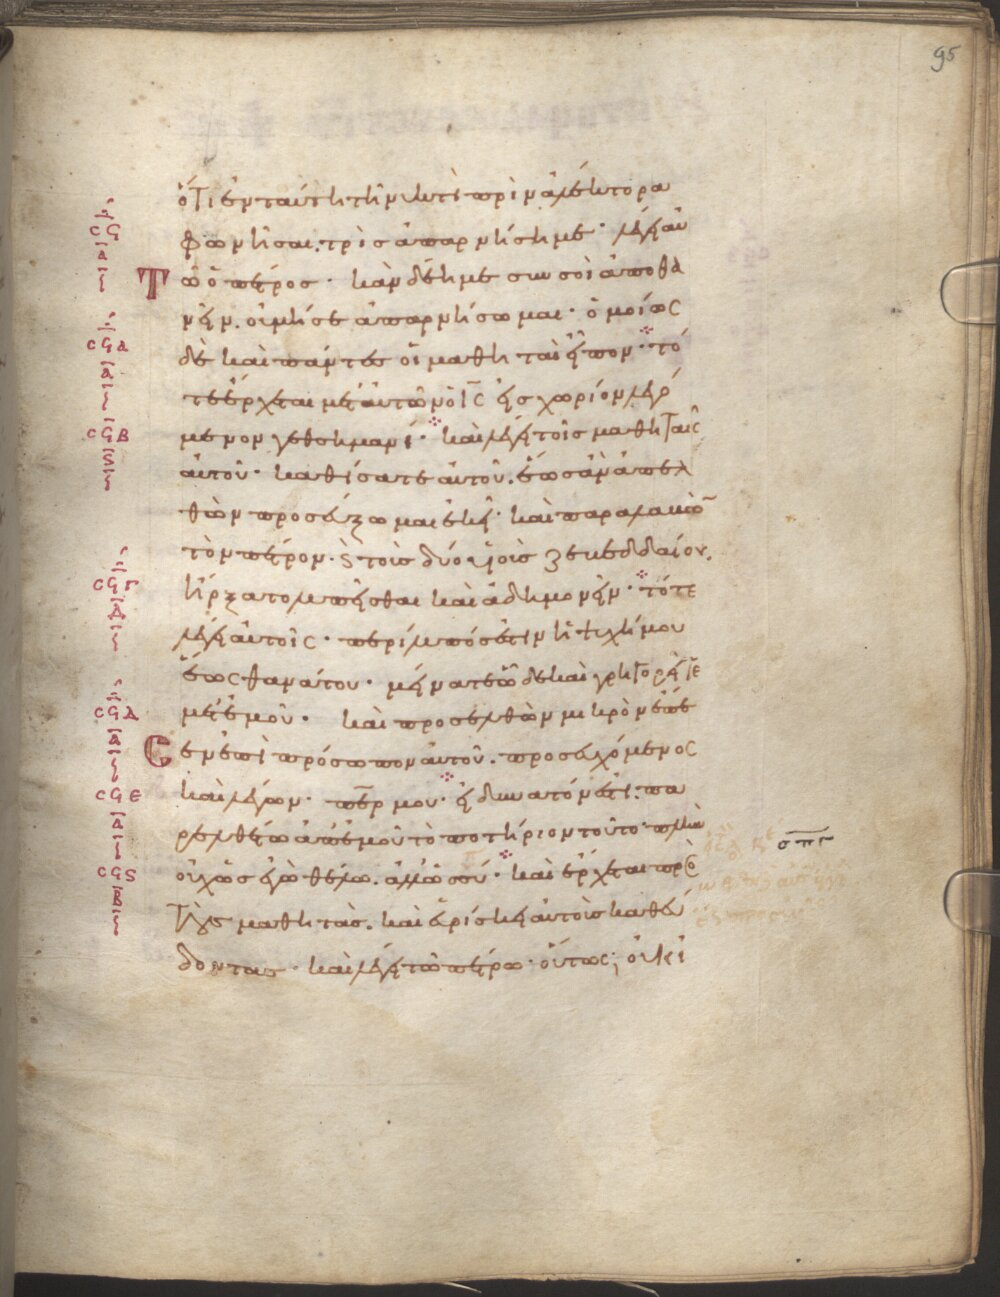 95
ὅτι ἐν ταύτη τῆ νυκτὶ πρὶν ἀλέκτορα
φωνῆσαι. τρὶς ἀπαρνήση με· λέγει αὐ
τῶ ὁ πέτρος· κἂν δέη με σὺν σοὶ ἀποθα
νεῖν. οὐ μή σε ἀπαρνήσωμαι· ὁμοίως
δὲ καὶ πάντες οἱ μαθηταὶ εἶπον· τό
τε ἔρχεται μετ' αὐτῶν ὁ ις εἰς χωρίον λεγό
μενον γεθσημανί· καὶ λέγει τοῖς μαθηταῖς
αὐτοῦ· καθίσατε αὐτοῦ. ἕως ἂν ἀπελ
θὼν προσεύξωμαι ἐκεῖ· καὶ παραλαβὼν
τὸν πέτρον. ϗ τοὺς δύο υἱοὺς ζεβεδαίου.
ἤρξατο λυπεῖσθαι καὶ ἀδημονεῖν· τότε
λέγει αὐτοῖς· περίλυπός ἐστιν ἡ ψυχή μου
ἕως θανάτου· μείνατε ὧδε καὶ γρηγορεῖτε
μετ' ἐμοῦ· καὶ προσελθὼν μικρὸν ἔπε
σεν ἐπὶ πρόσωπον αὐτοῦ. προσευχόμενος
καὶ λέγων· περ μου· εἰ δυνατόν ἐστι. πα
ρελθέτω ἀπ' ἐμοῦ τὸ ποτήριον τοῦτο· πλὴν
οὐχ ὡς ἐγὼ θέλω. ἀλλ' ὡς σύ· καὶ ἔρχεται πρὸς
τοὺς μαθητάς. καὶ εὑρίσκει αὐτοὺς καθεύ
δοντας· καὶ λέγει τῶ πέτρω· οὕτως; οὐκ ἰ
σπγ